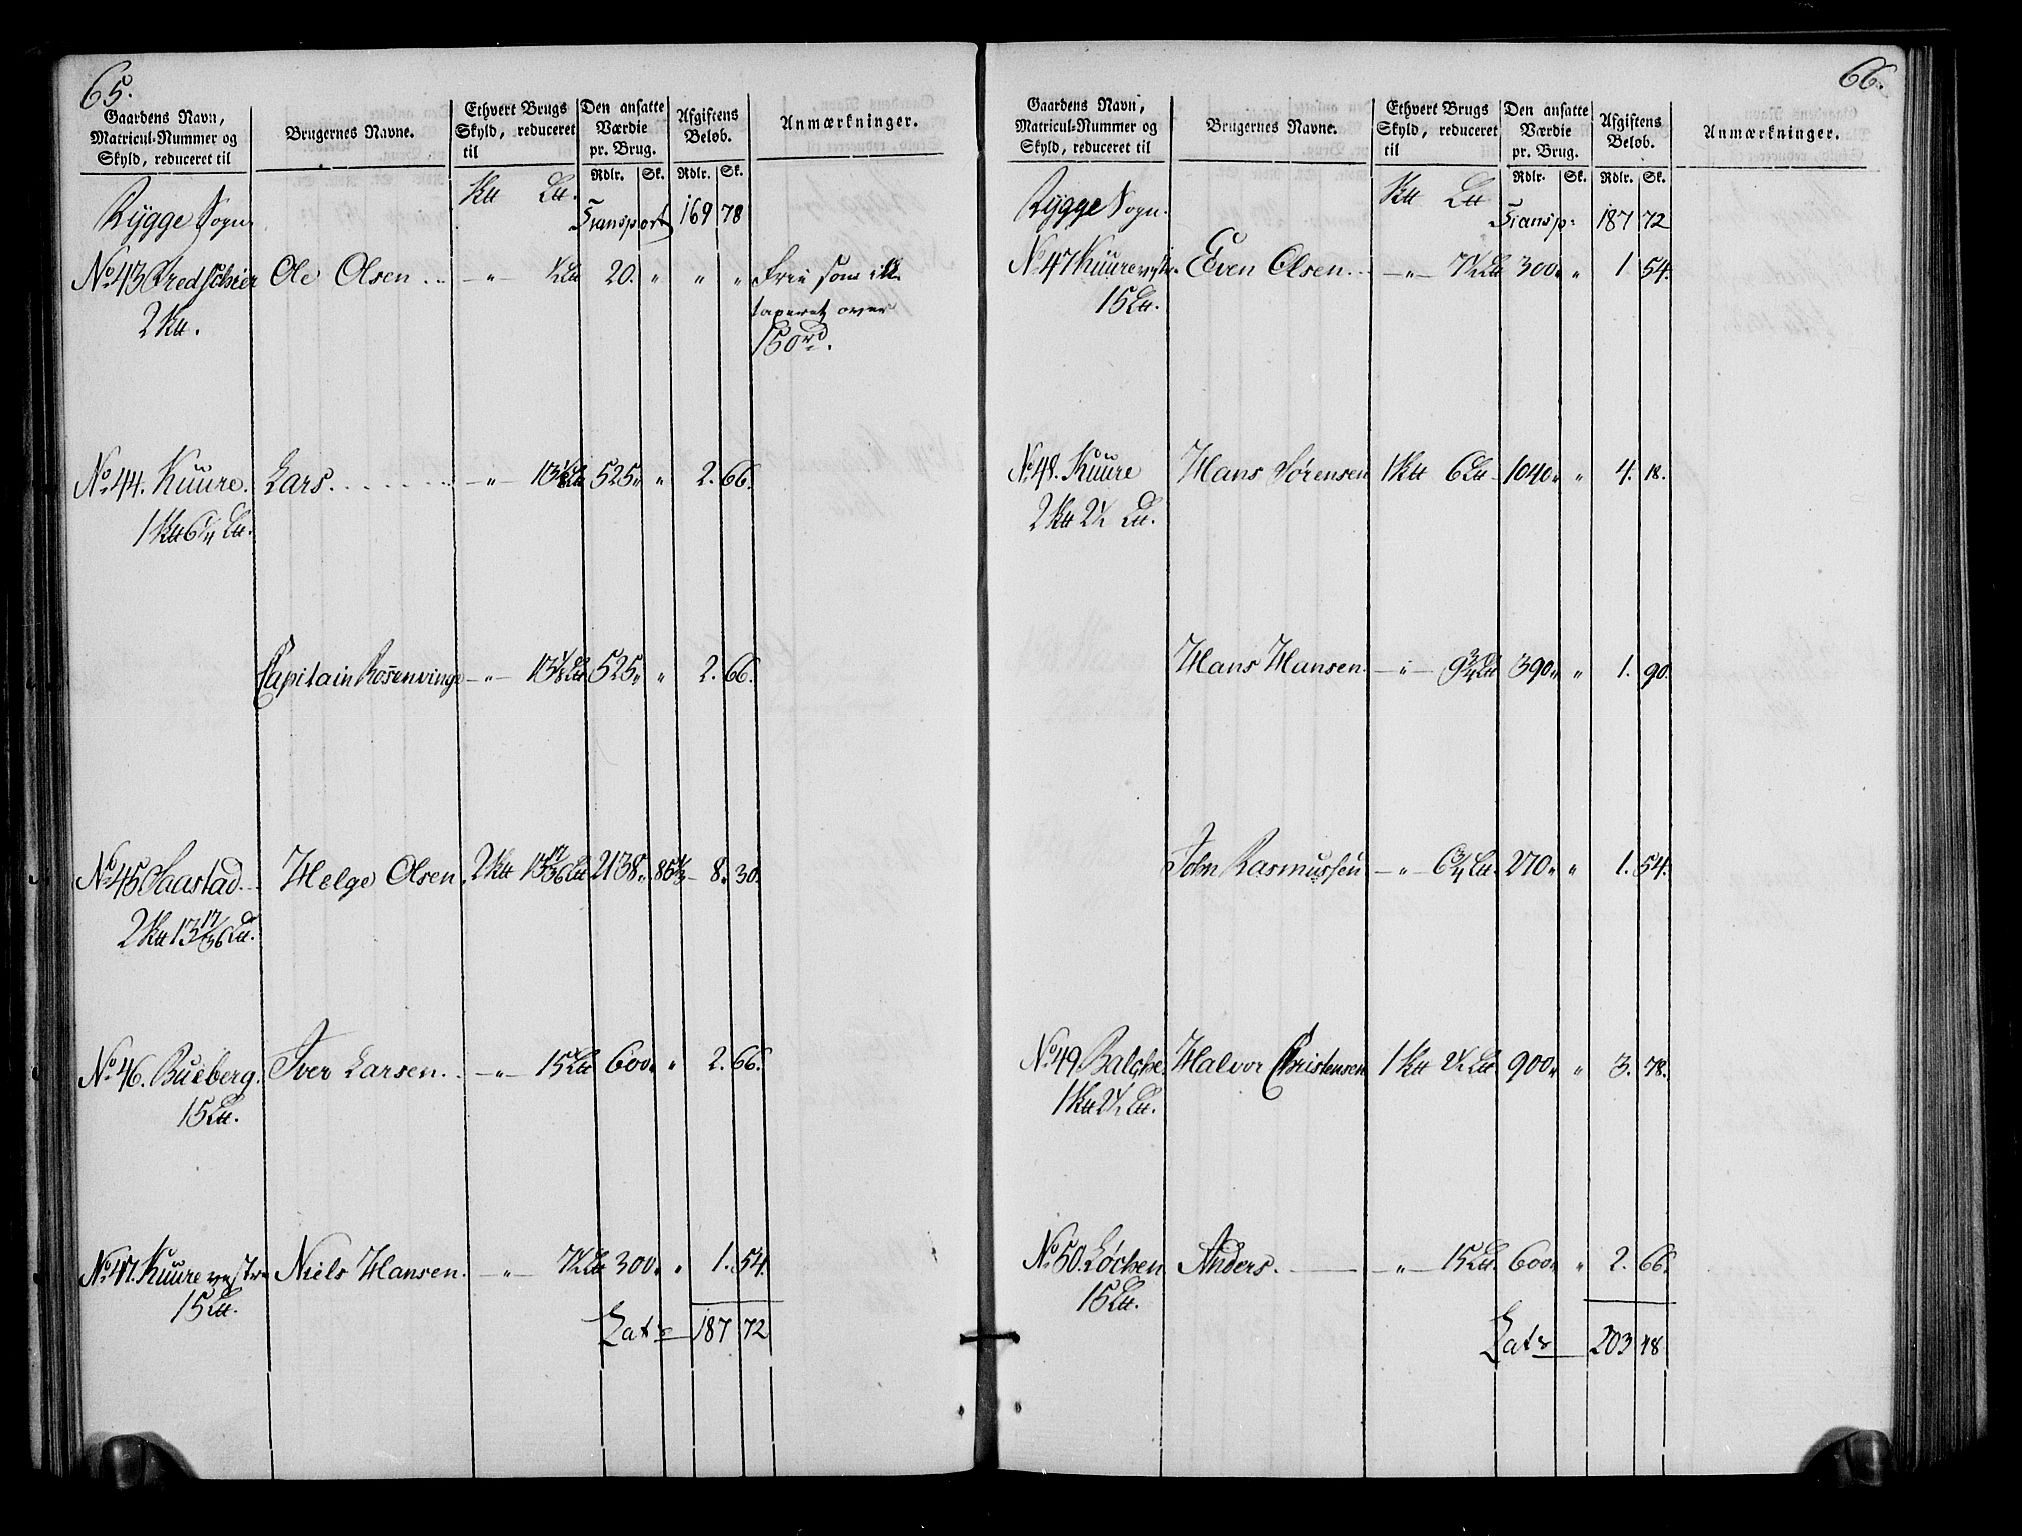 65.
Gaardens Navn, Matricul-Nummer og Skyld, reduceret til
Brugernes Navne.
Ethvert Brugs Skyld, reduceret til
Den ansatte Værdie pr. Brug.
Afgiftens Beløb.
Anmærkninger.
Rdlr. Sk. Rdlr. Sk.
Rygge Sogn. Transport 169 78
No 43 Ole Olsen .. " 20. " " " Frie som ikke
2 taxeret over
150 rd.
No 44. Kuure. Lars. . . . . . . . " 13 1/8 525 " " 2. 66.
1 6 1/4
Capitain Rosenvinge " 13 1/8 525 " " 2. 66.
No 45 Saastad. Helge Olsen. 2 13 17/36 2138 " 85 1/3 8. 30.
2 13 17/36
No 46. Bueberg. Iver Larsen. . " 15 600 " " 2. 66.
15
No 47. Kuure vestre Niels Hansen. " 7 1/2 300 " " 1. 54.
15
Lats 187 72
66.
Gaardens Navn, Matricul-Nummer og Skyld, reduceret til
Brugernes Navne.
Ethvert Brugs Skyld, reduceret til
Den ansatte Værdie pr. Brug.
Afgiftens Beløb.
Anmærkninger.
Rdlr. Sk. Rdlr. Sk.
Rygge Sogn. Transp: 187 72
No 47 Kuure vestr. Even Olsen.. " 7 1/2 300 " " 1 54.
15
No 48. Kuure Hans Sørensen 1 6 1040 " " 4. 18.
2 2 1/2
Hans Hansen. " 9 3/4 390 " " 1. 90.
John Rasmussen " 6 3/4 270 " " 1. 54.
No 49. Balche. Halvor Christensen 1 2 1/2 900 " " 3. 78.
1 2 1/2
No 50. Løchen Anders. " 15 600 " " 2. 66.
15
Lats 203 48